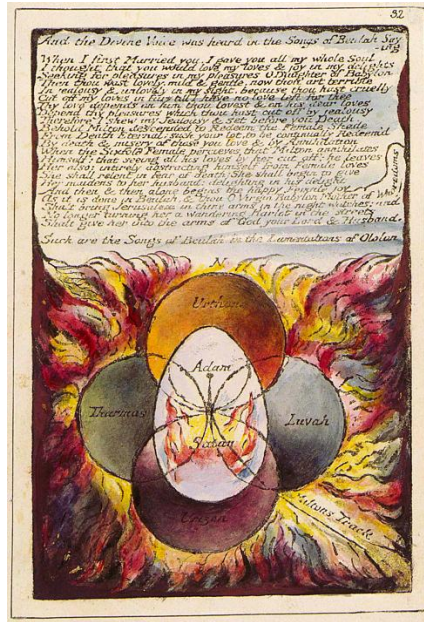 32
And the Divine Voice was heard in the Songs of Beulah Say
ing
When I first Married you, I gave you all my whole Soul
I thought that you would love my loves & joy in my delights
Seeking for pleasures in my pleasures O Daughter of Babylon
Then thou wast lovely, mild & gentle, now thou art terrible
In jealousy & unlovely in my sight, because thou hast cruelly
Cut off my loves in fury till I have no love left for thee
Thy love depends on him thou lovest & on his dear loves
Depend thy pleasures which thou hast cut off by jealousy
Therefore I shew my Jealousy & set before you Death.
Behold Milton descended to Redeem the Female Shade
From Death Eternal; such your lot, to be continually Redeem'd
By death & misery of those you love & by Annihilation
When the Sixfold Female percieves that Milton annihilates
Himself: that seeing all his loves by her cut off: he leaves
Her also: intirely abstracting himself from Female loves
She shall relent in fear of death: She shall begin to give
Her maidens to her husband: delighting in his delight
And then & then alone begins the happy Female joy
As it is done in Beulah, & thou O Virgin Babylon Mother of Who
redoms
Shalt bring Jerusalem in thine arms in the night watches; and
No longer turning her a wandering harlot in the streets
Shalt give her into the arms of God your Lord & Husband.
Such are the Songs of Beulah in the Lamentations of Ololon
N
Urthona
Adam
Tharmas
Luvah
Satan
Urizen
Miltons Track